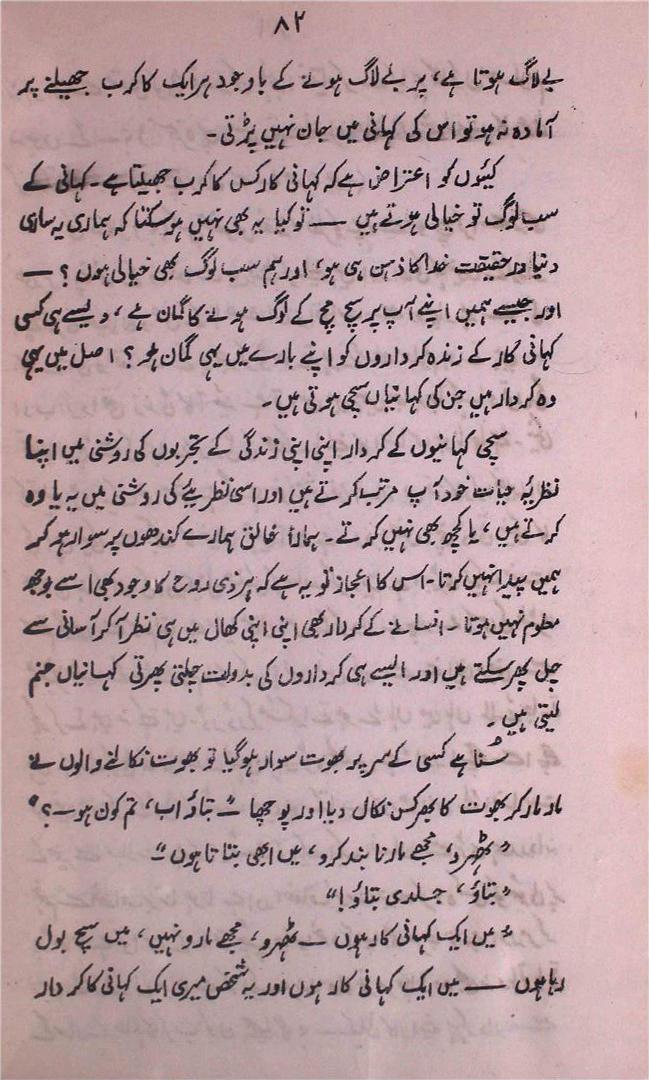 ۸۲
بے لاگ ہوتا ہے، پر بے لاگ ہونے کے باوجود ہر ایک کا کرب جھیلنے پر
آمادہ نہ ہو تو اس کی کہانی میں جان نہیں پڑتی۔
کیئوں کو اعتراض ہے کہ کہانی کار کس کا کرب جھیلتا ہے۔ کہانی کے
سب لوگ تو خیالی ہوتے ہیں — تو کیا یہ بھی نہیں ہو سکتا کہ ہماری یہ ساری
دنیا در حقیقت خدا کا ذہن ہی ہو، اور ہم سب لوگ بھی خیالی ہوں؟ —
اور جیسے ہمیں اپنے آپ پر سچ مچ کے لوگ ہونے کا گمان ہے، ویسے ہی کسی
کہانی کار کے زندہ کرداروں کو اپنے بارے میں یہی گمان ہو؟ اصل میں یہی
وہ کردار ہیں جن کی کہانیاں سچی ہوتی ہیں۔
سچی کہانیوں کے کردار اپنی اپنی زندگی کے تجربوں کی روشنی میں اپنا
نظریۂ حیات خود آپ مرتب کرتے ہیں اور اسی نظریئے کی روشنی میں یہ یا وہ
کرتے ہیں، یا کچھ بھی نہیں کرتے۔ ہمارا خالق ہمارے کندھوں پر سوار ہو کر
ہمیں پیدا نہیں کرتا۔ اس کا اعجاز تو یہ ہے کہ ہر ذی روح کا وجود بھی اسے بوجھ
معلوم نہیں ہوتا۔ افسانے کے کردار بھی اپنی اپنی کھال میں ہی نظر آ کر آسانی سے
چل پھر سکتے ہیں اور ایسے ہی کرداروں کی بدولت چلتی پھرتی کہانیاں جنم
لیتی ہیں۔
سُنا ہے کسی کے سر پر بھوت سوار ہو گیا تو بھوت نکالنے والوں نے
مار مار کر بھوت کا بھرکس نکال دیا اور پوچھا — "بتاؤ اب، تم کون ہو—؟"
"ٹھہرو، مجھے مارنا بند کرو، میں ابھی بتاتا ہوں —"
"بتاؤ، جلدی بتاؤ!"
"میں ایک کہانی کار ہوں — ٹھہرو، مجھے مارو نہیں، میں سچ بول
رہا ہوں — میں ایک کہانی کار ہوں اور یہ شخص میری ایک کہانی کا کردار